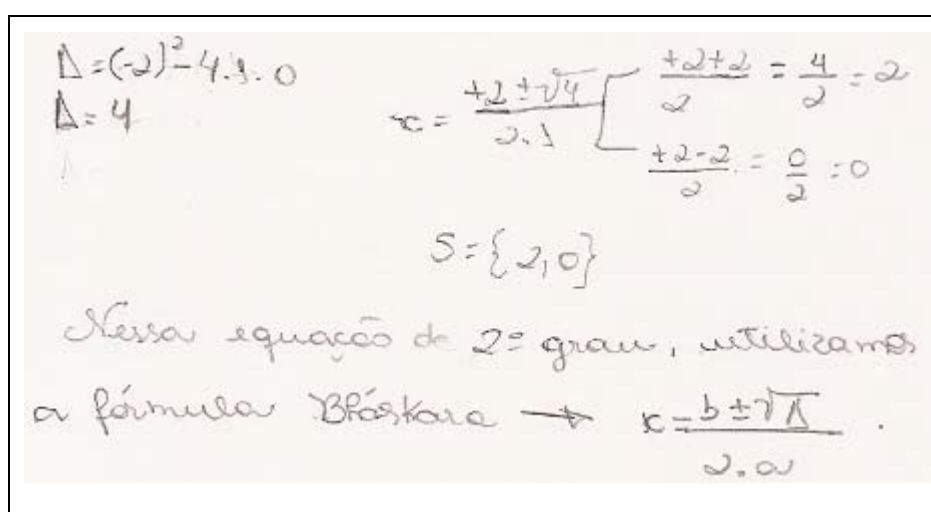 Δ=(-2)²-4.1.0
Δ=4
x= +2±√4/2.1
+2+2/2 = 4/2 = 2
+2-2/2 = 0/2 = 0
S={2,0}
Nessa equação de 2º grau, utilizamos
a fórmula Bháskara → x= b±√Δ/2.a .